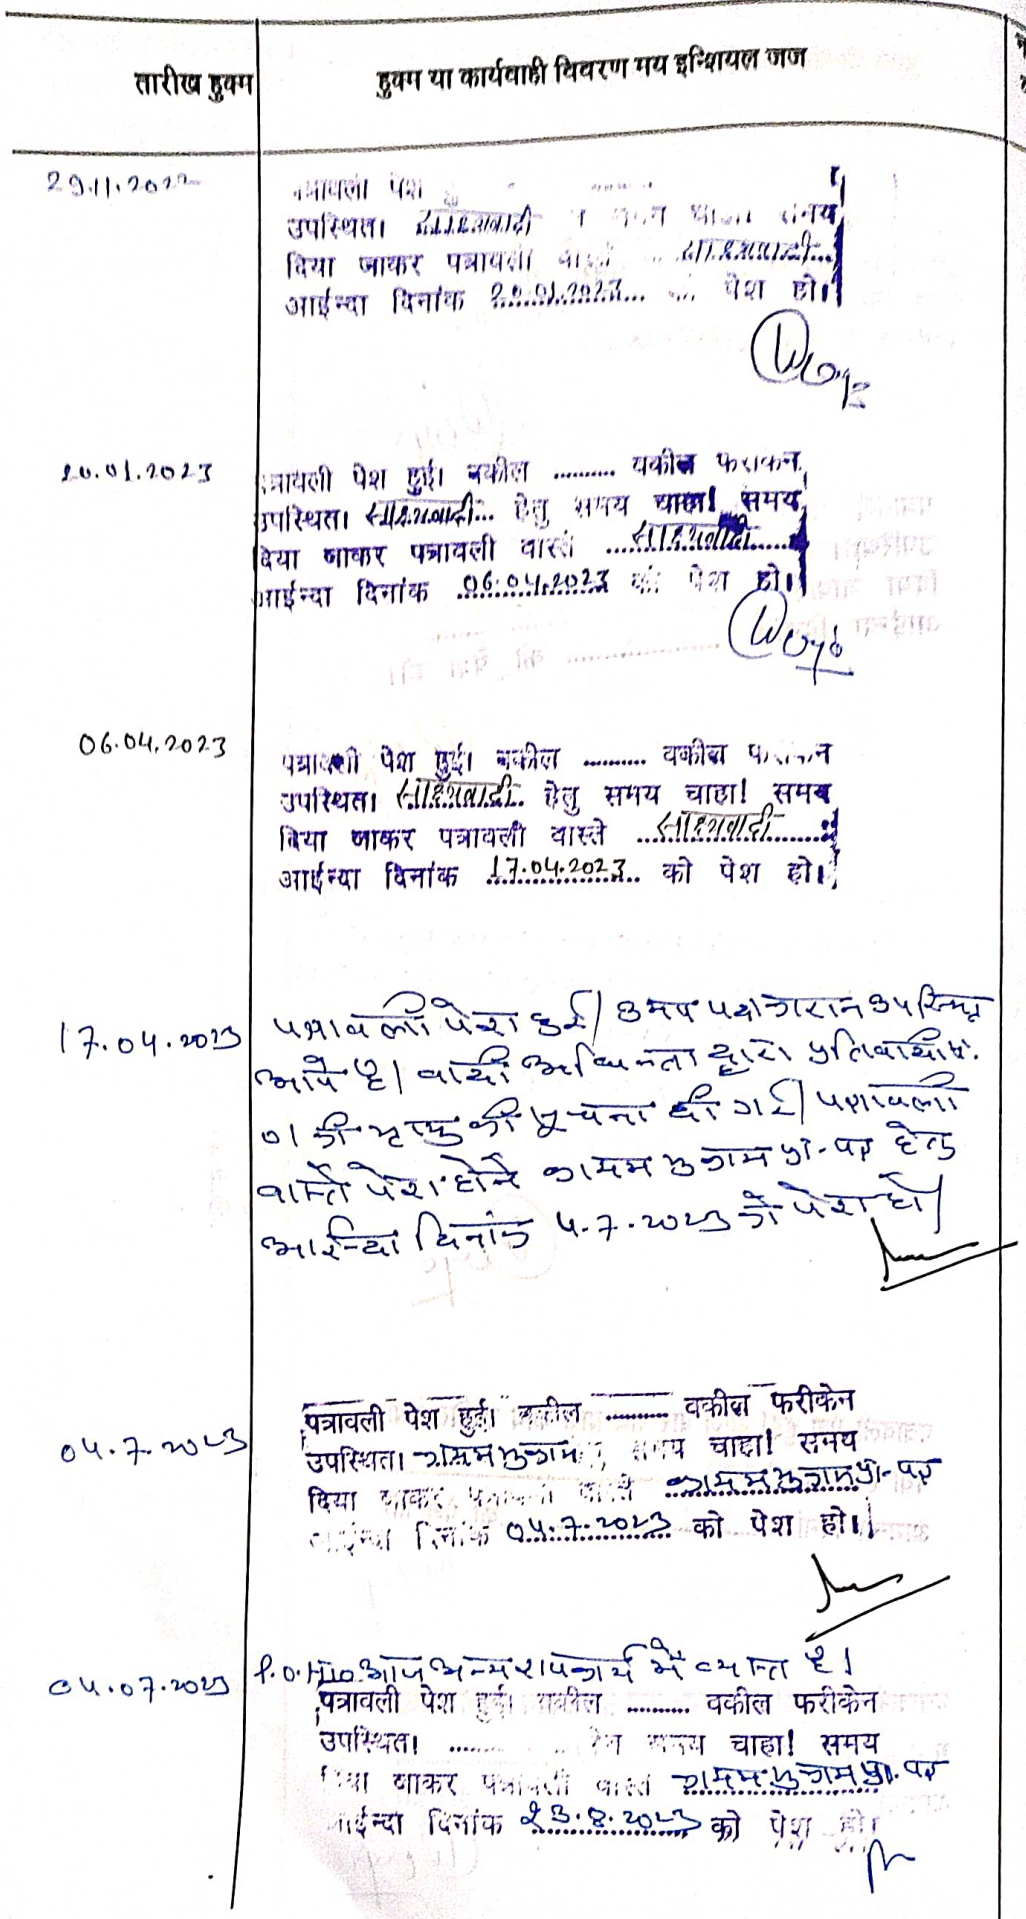 तारीख हुक्म
हुक्म या कार्यवाही विवरण मय इन्शियल जज
29.11.2022
पत्रावली पेश
उपस्थित। साक्ष्यवादी समय
दिया जाकर पत्रावली वास्ते साक्ष्यवादी...
आईन्दा दिनांक 20.01.2023... को पेश हो।
20.01.2023
पत्रावली पेश हुई। वकील .......... वकील फरीकेन
उपस्थित। साक्ष्यवादी... हेतु समय चाहा! समय
दिया जाकर पत्रावली वास्ते ......साक्ष्यवादी......
आईन्दा दिनांक 06.04.2023 को पेश हो।
06.04.2023
पत्रावली पेश हुई। वकील .......... वकील फरीकेन
उपस्थित। साक्ष्यवादी. हेतु समय चाहा! समय
दिया जाकर पत्रावली वास्ते ...साक्ष्यवादी......
आईन्दा दिनांक 17.04.2023.. को पेश हो।
17.04.2023
पत्रावली पेश हुई। उभय पक्षकारान उपस्थित
आये है। वादी द्वारा प्रतिवादी सं.
01 की मृत्यु की सूचना दी गई। पत्रावली
वास्ते पेश होने कायम मुकाम प्रा. पत्र हेतु
आईन्दा दिनांक 4.7.2023 को पेश हो।
04.7.2023
पत्रावली पेश हुई। वकील .......... वकील फरीकेन
उपस्थित। कायम मुकाम समय चाहा! समय
दिया जाकर पत्रावली वास्ते कायम मुकाम प्रा. पत्र
आईन्दा दिनांक 04.7.2023 को पेश हो।
04.07.2023
P.O. आज अन्य राजकार्य में व्यस्त है।
पत्रावली पेश हुई। वकील .......... वकील फरीकेन
उपस्थित। .......... हेतु समय चाहा! समय
दिया जाकर पत्रावली वास्ते कायम मुकाम प्रा. पत्र
आईन्दा दिनांक 23.8.2023 को पेश हो।